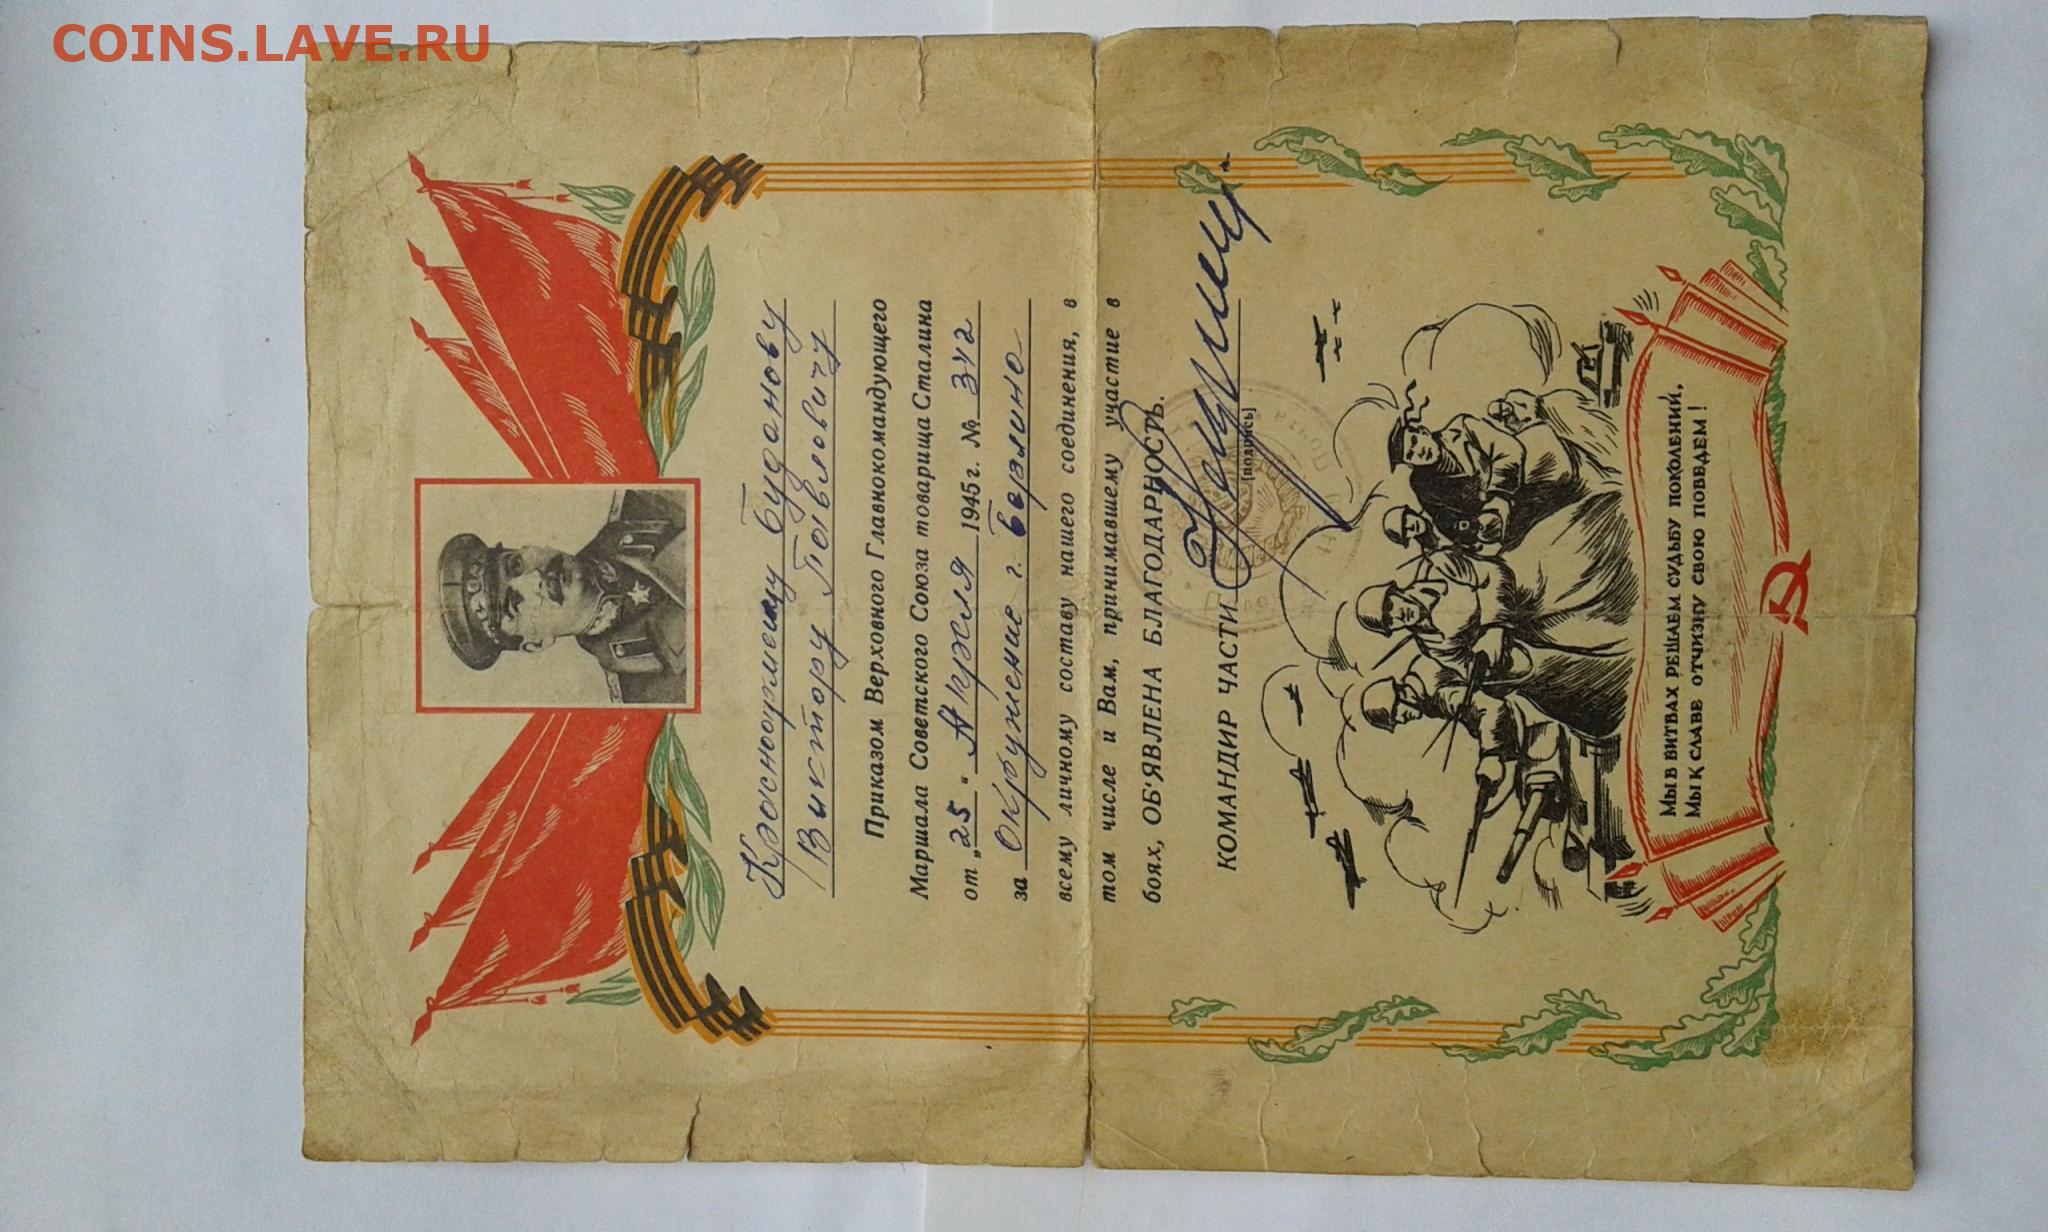 COINS.LAVE.RU
Красноармейцу Буданову
Виктору Павловичу
Приказом Верховного Главнокомандующего
Маршала Советского Союза товарища Сталина
от „25" Апреля 1945 г. № 342
за Окружение г. Берлина
всему личному составу нашего соединения, в
том числе и Вам, принимавшему участие в
боях, ОБ'ЯВЛЕНА БЛАГОДАРНОСТЬ.
КОМАНДИР ЧАСТИ
[подпись]
МЫ В БИТВАХ РЕШАЕМ СУДЬБУ ПОКОЛЕНИЙ,
МЫ К СЛАВЕ ОТЧИЗНУ СВОЮ ПОВЕДЕМ!